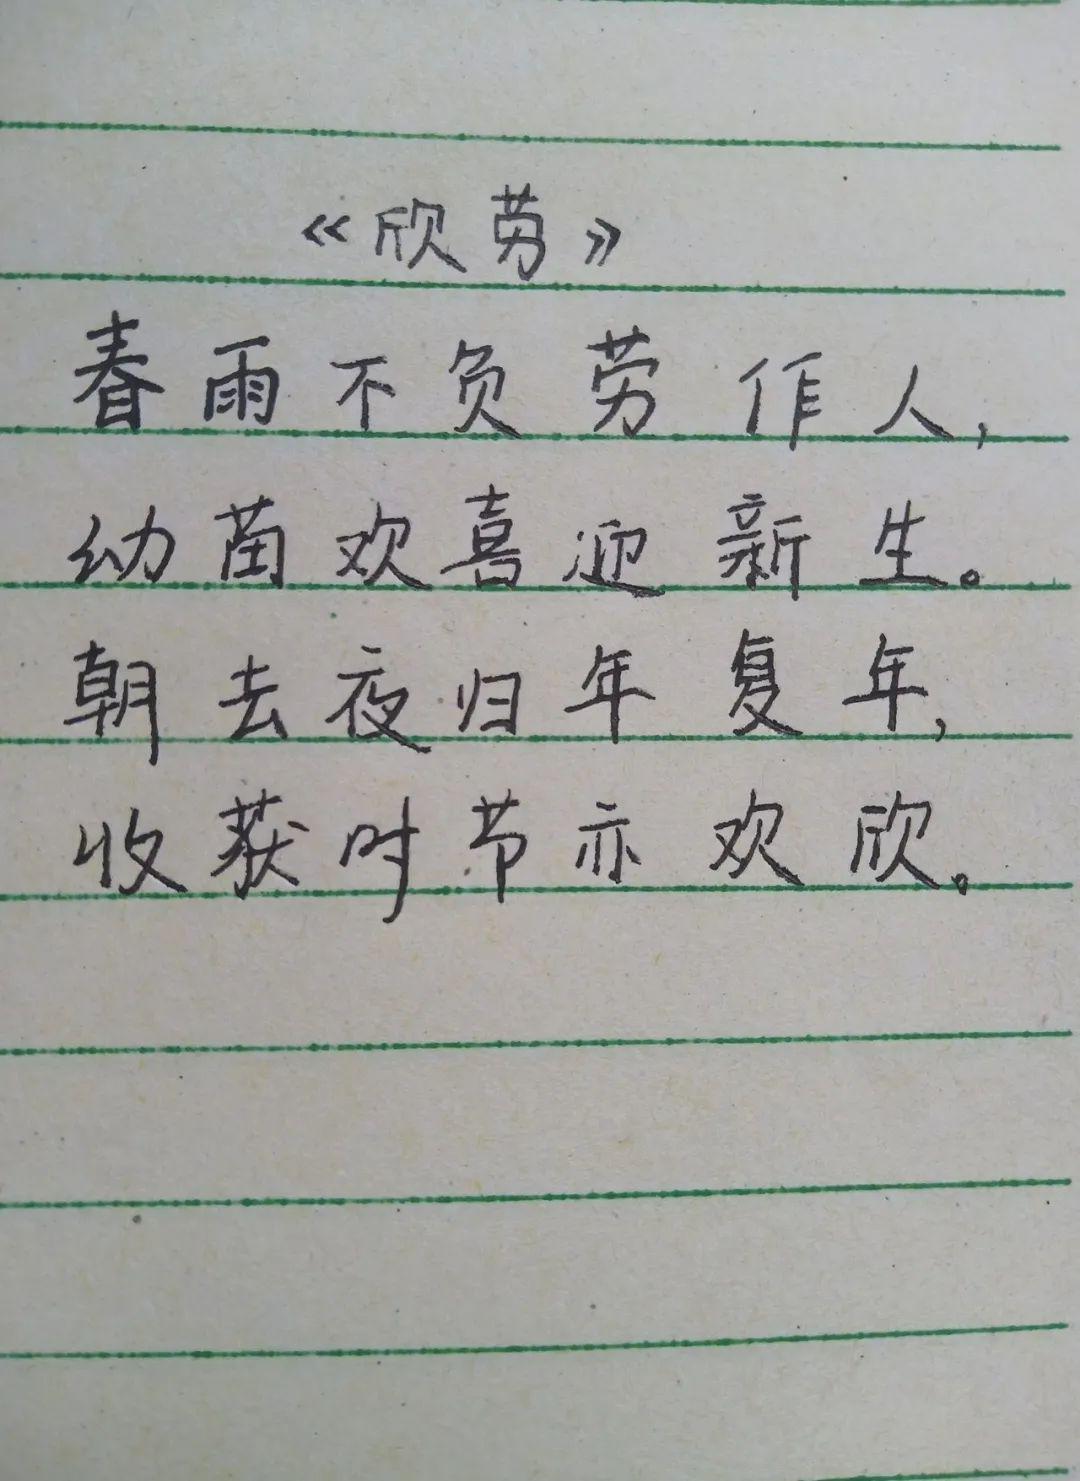 《欣劳》
春雨不负劳作人,
幼苗欢喜迎新生。
朝去夜归年复年,
收获时节亦欢欣。